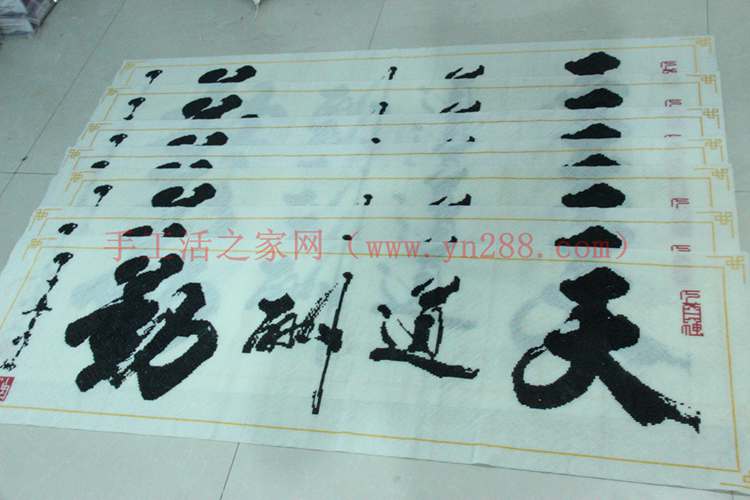 手工活之家网（www.yn288.com）
天道酬勤